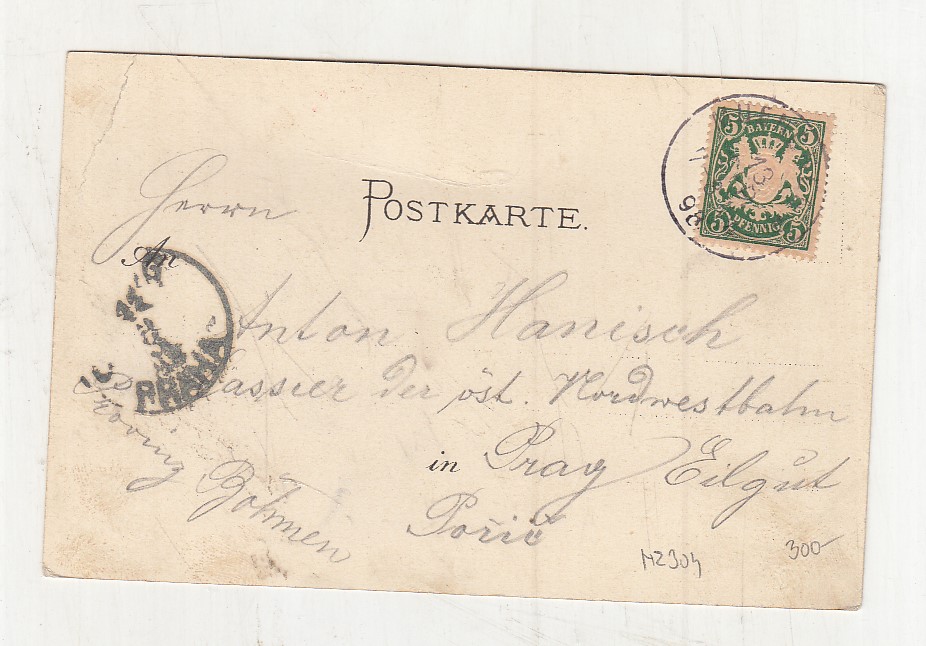 POSTKARTE.
5 BAYERN 5
5 PFENNIG 5
13
98
Herrn
An
Anton Hanisch
Cassier der öst. Nordwestbahn
in Prag Eilgut
Pořič
Böhmen
PRAHA
MZ304
300-